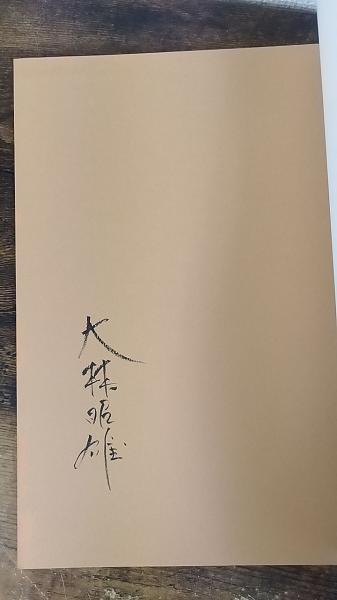 大林昭雄